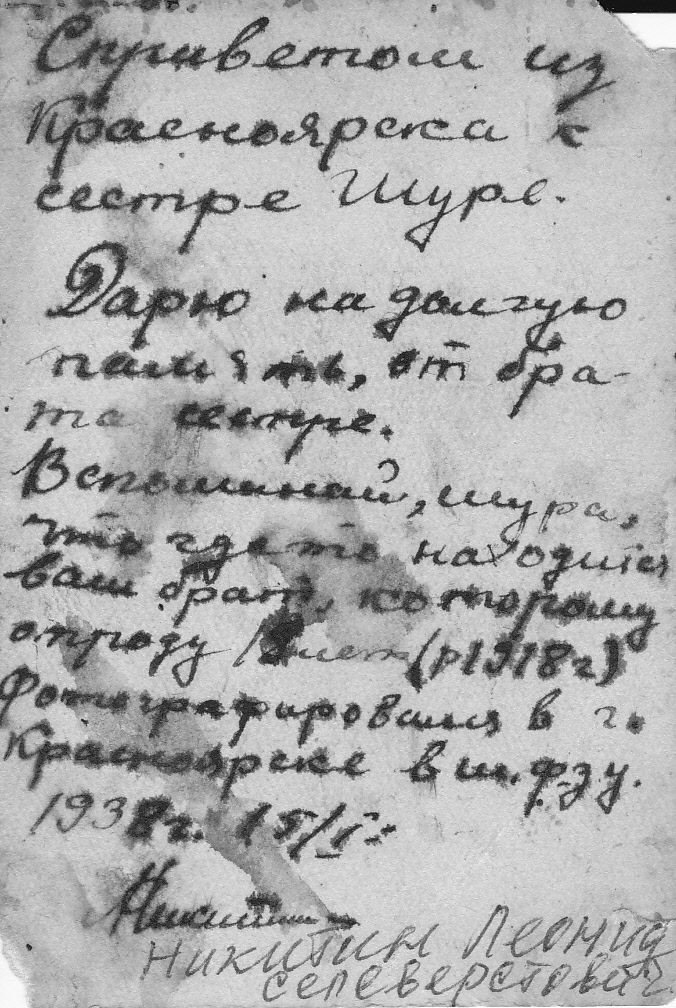 С приветом из
Красноярска к
сестре Шуре.
Дарю на долгую
память, от бра-
та сестре.
Вспоминай, Шура,
что где то находится
ваш брат, которому
отроду лет (р 1918 г)
Фотографировался в г.
Красноярске в ш. фзу.
1938 г. 15/I
Никитин
Никитин Леонид
Селеверстович